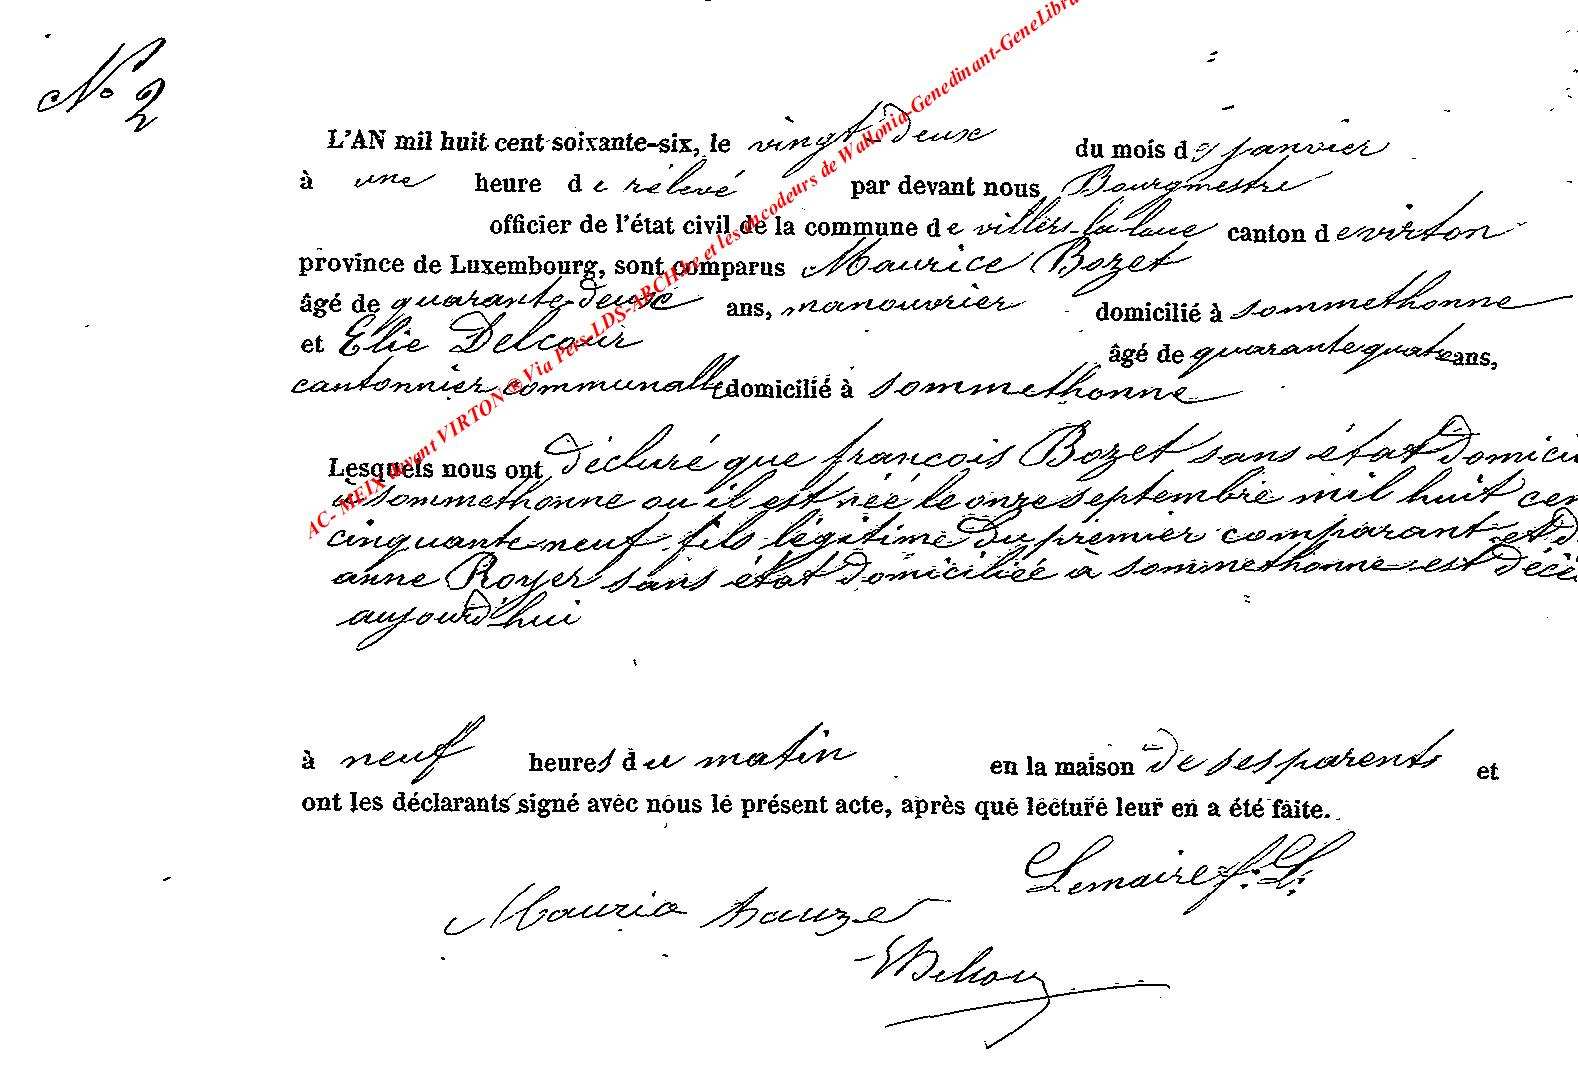 N° 2
L'AN mil huit cent soixante-six, le vingt deux du mois de janvier
à une heure de rélevé par devant nous Bourgmestre
officier de l'état civil de la commune de villers-la loue canton de virton
province de Luxembourg, sont comparus Maurice Bozet
âgé de quarante-deux ans, manouvrier domicilié à sommethonne
et Elie Delcour âgé de quarante quatre ans,
cantonnier communalle domicilié à sommethonne
Lesquels nous ont déclaré que francois Bozet sans état domici
a sommethonne ou il est néé le onze septembre mil huit cen
cinquante neuf fils légitime du prémier comparant et d
anne Royer sans état domiciliée à sommethonne est décé
aujourd'hui
à neuf heures du matin en la maison de ses parents et
ont les déclarants signé avec nous le présent acte, après que lecture leur en a été faite.
Lemaire f. L.
Mauric
AC- MEIX devant VIRTON ® Via Pers-LDS-ARCH.be et les encodeurs de Wallonia-Genedinant-GeneLibra